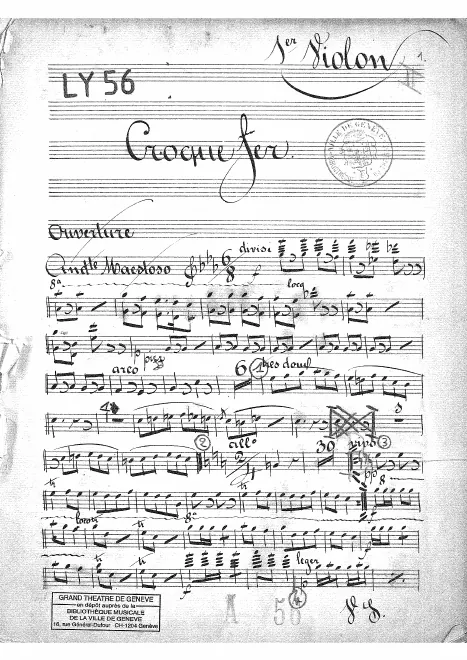 1er Violon
1.
LY 56
Croquefer.
VILLE DE GENÈVE
Ouverture
divisi
Andte Maestoso
6
8
f
8a
loco
p
pizz
arco
6
1
tres doux
4
8
2
allo
2
4
30
vivo
3
pp
8
tr
tr
loco
tr
8a
tr
tr
leger
f
p
4
GRAND THEATRE DE GENEVE
en dépôt auprès de la
BIBLIOTHÈQUE MUSICALE
DE LA VILLE DE GENEVE
16, rue Général-Dufour CH-1204 Genève
A 56
V. S.